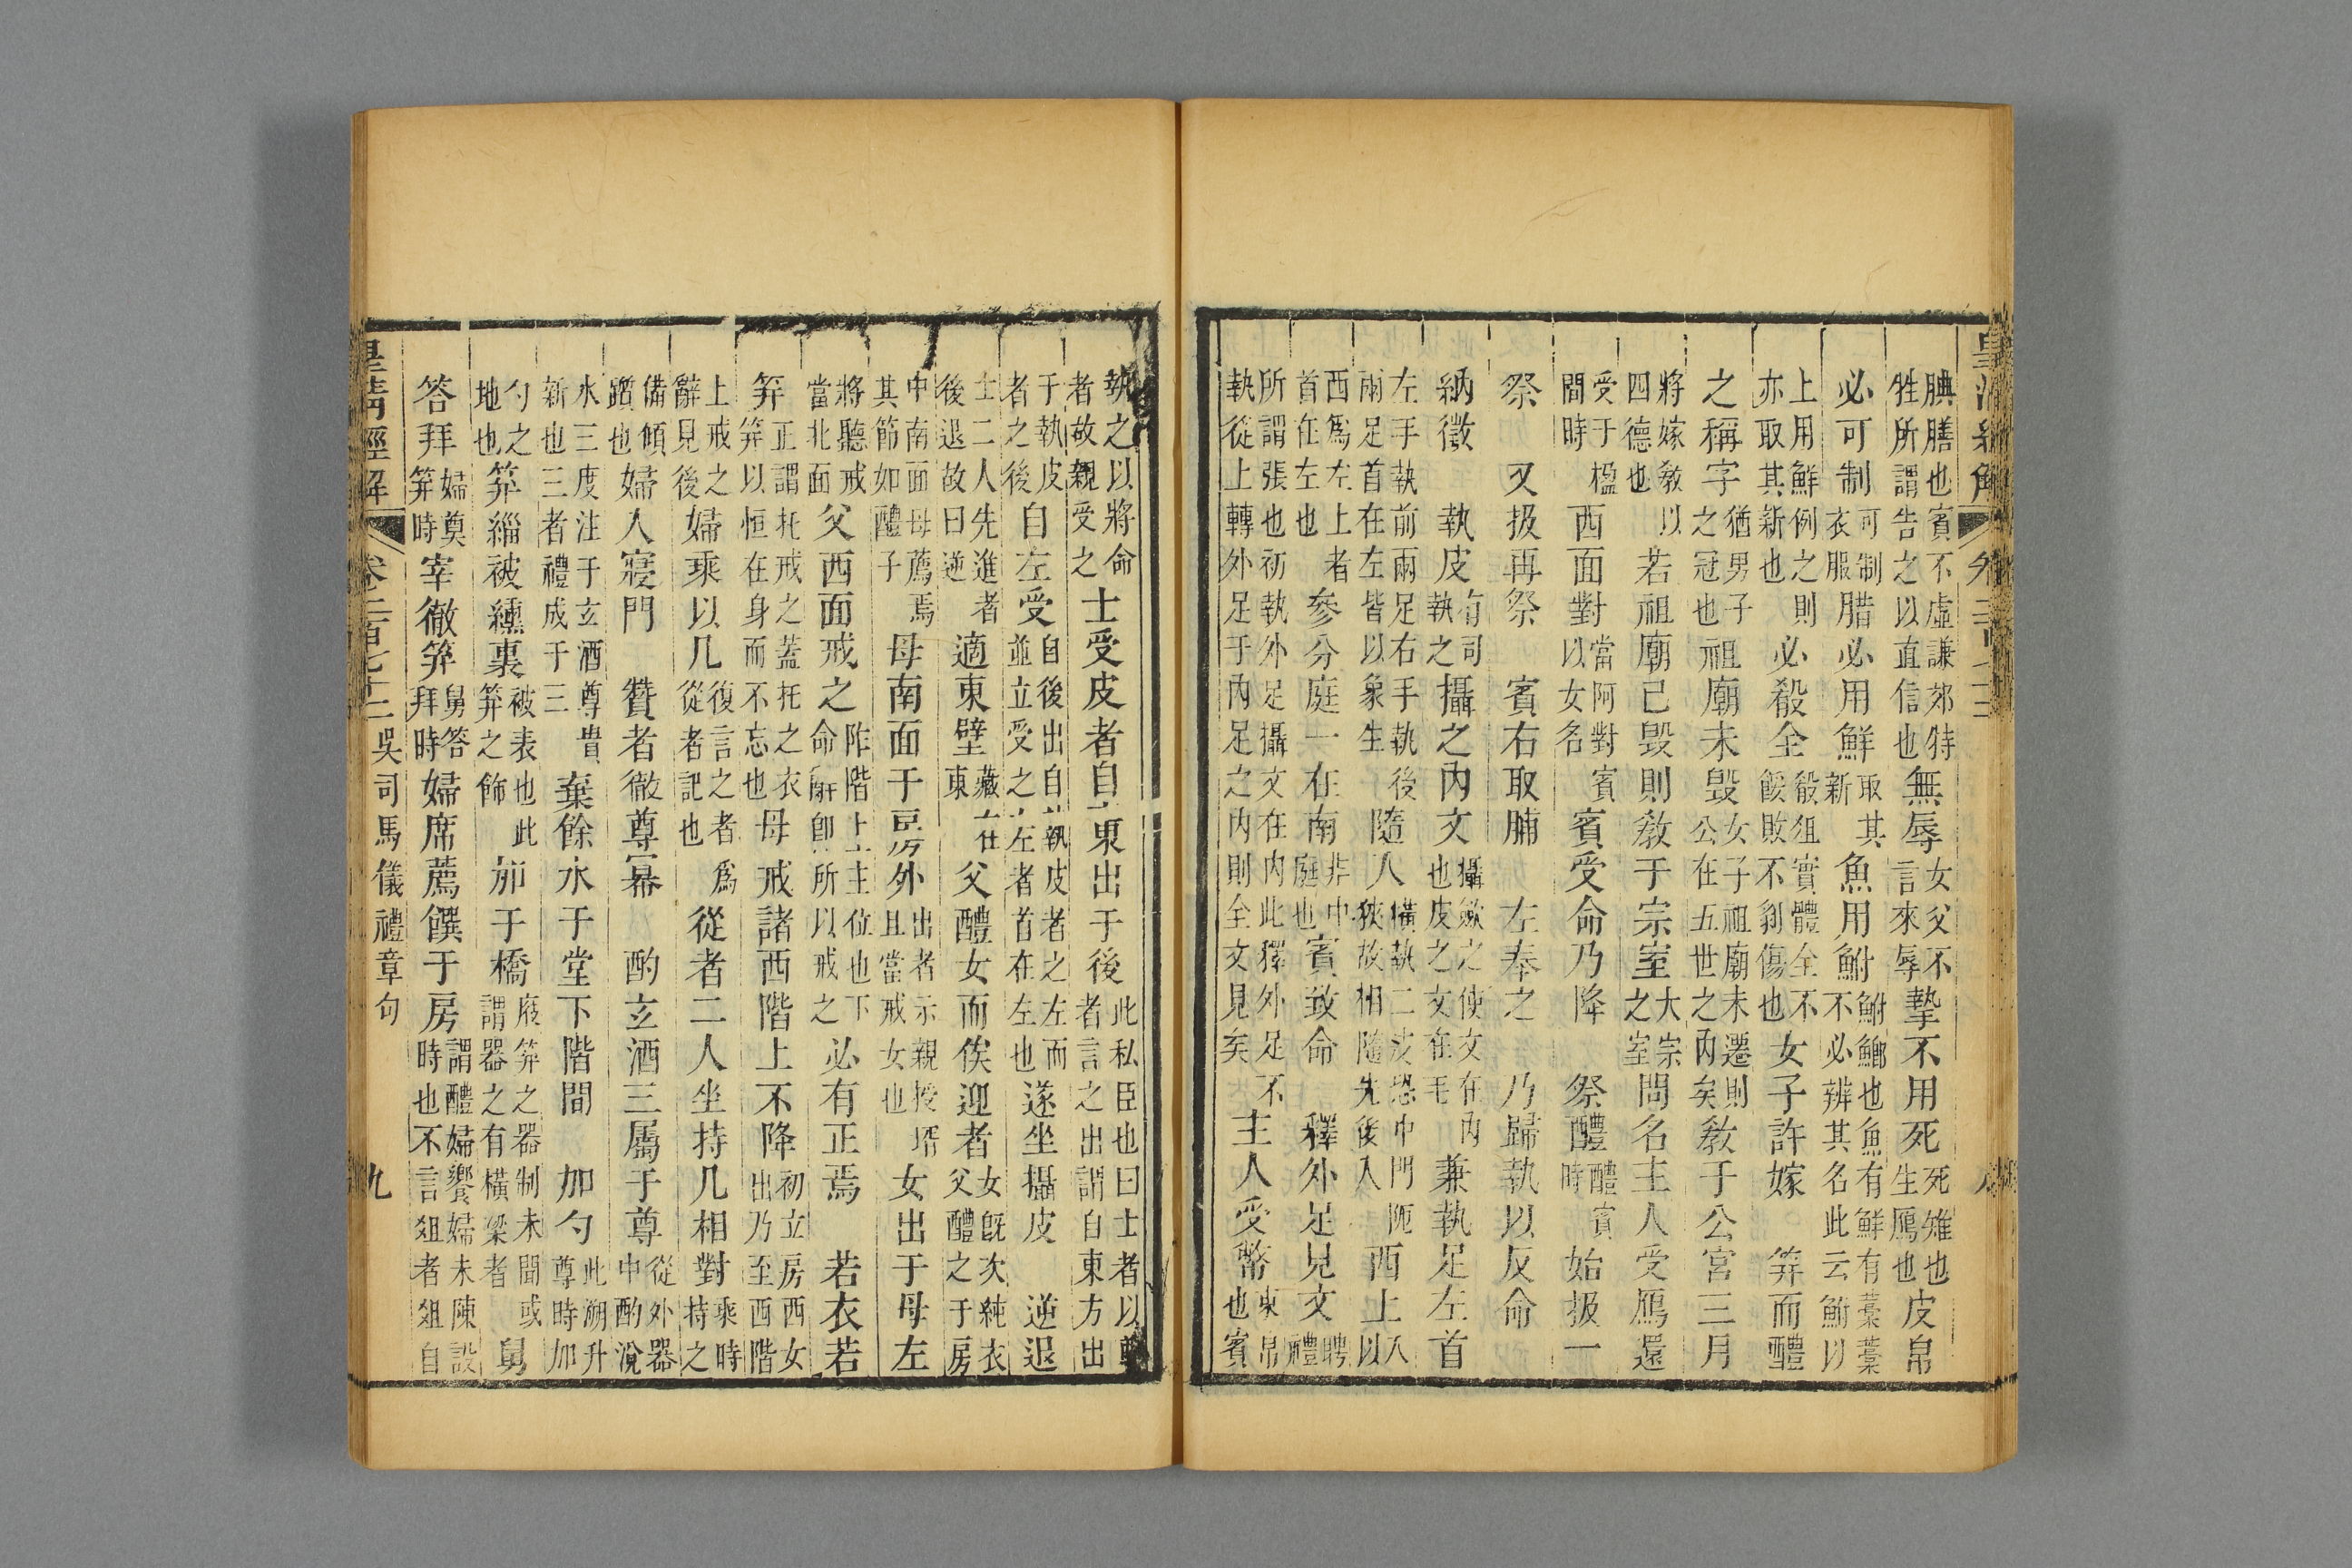 腆膳也賓不虛謙郊特牲所謂告之以直信也無辱女父不言來辱摯不用死死雉也生鴈也皮帛
必可制可制衣服腊必用鮮取其新魚用鮒鮒鯽也魚有鮮有薧薧不必辨其名此云鮒以
上用鮮例之則亦取其新也必殽全殽俎實體全不餒敗不剝傷也女子許嫁 笄而醴
之稱字猶男子之冠也祖廟未毀女子祖廟未遷則公在五世之內矣教于公宮三月
將嫁教以四德也若祖廟已毀則教于宗室大宗之室問名主人受鴈還
受于楹間時西面對當阿對賓以女名賓受命乃降 祭醴醴賓時始扱一
祭 又扱再祭 賓右取脯 左奉之 乃歸執以反命
納徵 執皮有司執之攝之內文攝斂之使文在內也皮之文在毛兼執足左首
左手執前兩足右手執後兩足首在左皆以象生隨入橫執二皮恐中門阨狹故相隨先後入西上入以
西爲左上者首在左也參分庭一在南非中庭也賓致命 釋外足見文聘禮
所謂張也初執外足攝文在內此釋外足不執從上轉外足于內足之內則全文見矣主人受幣束帛也賓
執之以將命者故親受之士受皮者自東出于後此私臣也曰士者以執者言之出謂自東方出
于執皮者之後自左受自後出自執皮者之左而並立受之左者首在左也遂坐攝皮 逆退
士二人先進者後退故曰逆適東壁藏在東父醴女而俟迎者女旣次純衣父醴之于房
中南面母薦焉其節如醴子母南面于房外出者示親授壻且當戒女也女出于母左
將聽戒當北面父西面戒之阼階上主位也下命辭卽所以戒之必有正焉 若衣若
笄正謂托戒之蓋托之衣笄以恒在身而不忘也母戒諸西階上不降初立房西女出乃至西階
上戒之辭見後婦乘以几復言之者爲從者記也從者二人坐持几相對乘時持之
備傾蹈也婦人寢門 贊者徹尊冪 酌玄酒三屬于尊從外器中酌涗
水三度注于玄酒尊貴新也三者禮成于三棄餘水于堂下階間 加勺此溯升尊時加
勺之地也笄緇被纁裏被表也此笄之飾加于橋庪笄之器制未聞或謂器之有橫梁者舅
答拜婦奠笄時宰徹笄舅答拜時婦席薦饌于房謂醴婦饗婦未陳設時也不言俎者俎自
皇清經解 卷二百七十二 吳司馬儀禮章句 九